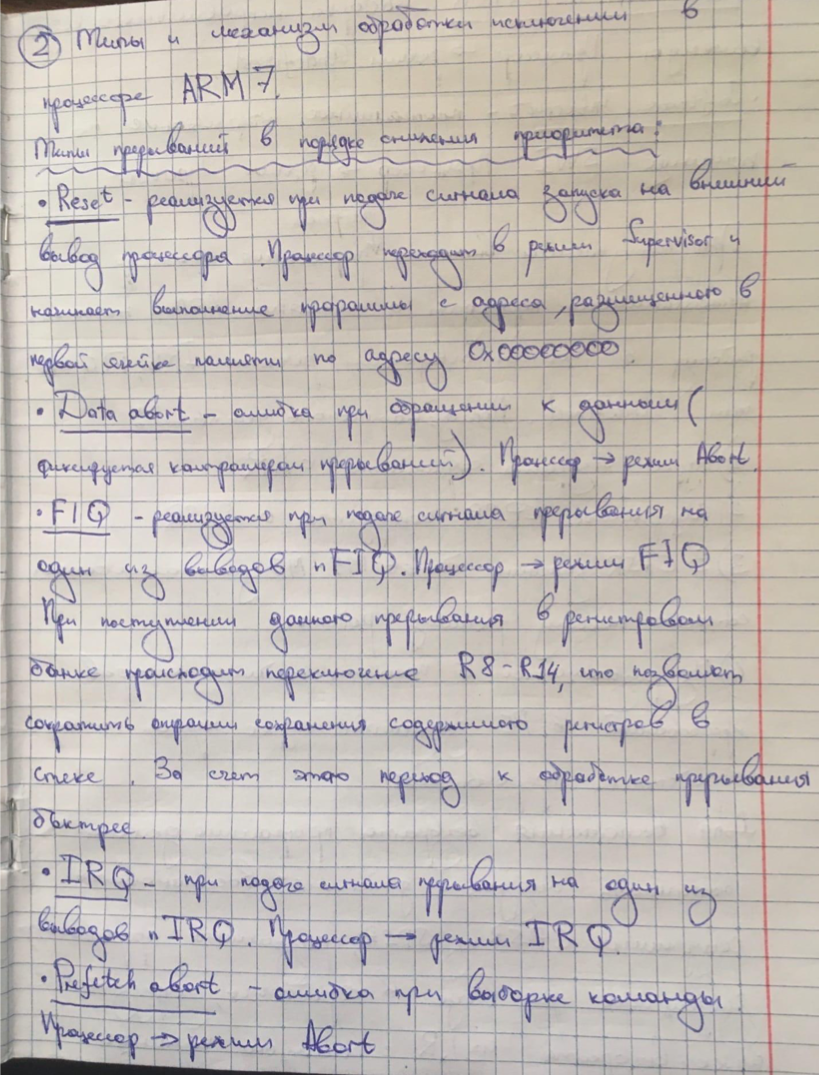 2 Типы и механизм обработки исключений в
процессоре ARM7.
Типы прерываний в порядке снижения приоритета:
• Reset - реализуется при подаче сигнала запуска на внешний
вывод процессора. Процессор переходит в режим Supervisor и
начинает выполнение программы с адреса, размещенного в
первой ячейке памяти по адресу 0x00000000.
• Data abort - ошибка при обращении к данным (
фиксируется контроллером прерываний). Процессор → режим Abort.
• FIQ - реализуется при подаче сигнала прерывания на
один из выводов nFIQ. Процессор → режим FIQ
При поступлении данного прерывания в регистровом
банке происходит переключение R8-R14, что позволяет
сократить операции сохранения содержимого регистров в
стеке. За счет этого переход к обработке прерывания
быстрее.
• IRQ - при подаче сигнала прерывания на один из
выводов nIRQ. Процессор → режим IRQ.
• Prefetch abort - ошибка при выборке команды.
Процессор → режим Abort